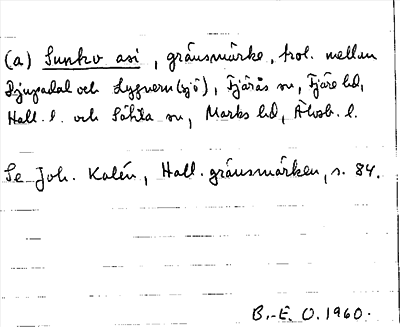 (a) Sunkv asi, gränsmärke, trol. mellan
Djupadal och Lygnern (sjö), Fjärås sn, Fjäre hd,
Hall. l. och Sätila sn, Marks hd, Älvsb. l.
Se Joh. Kalén, Hall. gränsmärken, s. 84.
B.-E. O. 1960.